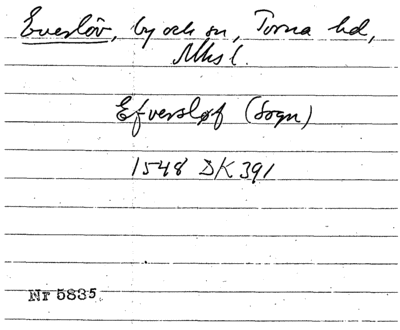 Everlöv, by och sn, Torna hd,
Mhs l.
Efversløf (Sogn)
1548 DK 391
Nr 5835